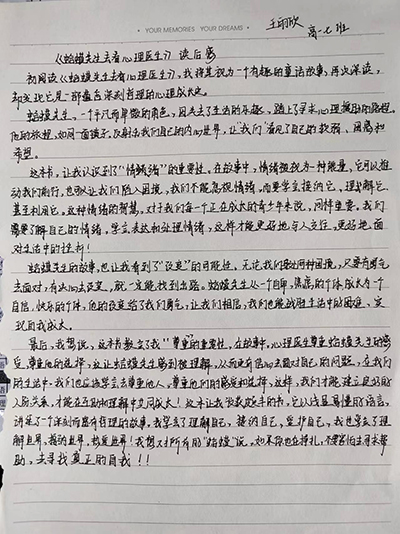 · YOUR MEMORIES YOUR DREAMS ·
高一七班
《蛤蟆先生去看心理医生》读后感
初闻读《蛤蟆先生去看心理医生》，我将其视为一个有趣的童话故事，再次深读，
却发现它是一部蕴含深刻哲理的心理成长史。
蛤蟆先生，一个平凡而卑微的角色，因失去了生活的乐趣，踏上了寻求心理援助的路程。
他的旅程，如同一面镜子，反射出我们自己的内心世界，让我们看见了自己的软弱、困惑和
希望。
这本书，让我认识到了“情绪”的重要性。在故事中，情绪被视为一种能量，它可以推
动我们前行，也可以让我们陷入困境，我们不能忽视情绪，而要学会接纳它、理解它、
甚至利用它。这种情绪的智慧，对于我们每一个正在成长的青少年来说，同样重要。我们
需要了解自己的情绪，学会表达和处理情绪，这样才能更好地与人交往，更好地面
对生活中的挫折！
蛤蟆先生的故事，也让我看到了“改变”的可能性。无论我们身处何种困境，只要有勇气
去面对，有决心去改变，就一定能找到出路。蛤蟆先生从一个自卑、焦虑的个体成长为一个
自信、快乐的个体，他的改变给了我们勇气，让我们相信，我们也能战胜生活中的困难、实
现自我成长。
最后，我想说，这本书教会了我“尊重”的重要性，在故事中，心理医生尊重蛤蟆先生的感
受，尊重他的选择，这让蛤蟆先生感到被理解，从而更有信心去面对自己的问题，在我们
的生活中，我们也应该学会去尊重他人，尊重他们的感受和选择，这样，我们才能建立良好的
人际关系，才能在互助和理解中共同成长！这本让我获益匪浅的书，它以浅显易懂的语言，
讲述了一个深刻而富有哲理的故事，我学会了理解自己，接纳自己，爱护自己，我也学会了理
解世界、拥抱世界，热爱世界！我想对所有的“蛤蟆”说，如果你也在挣扎，不要害怕去寻求帮
助，去寻找真正的自我！！